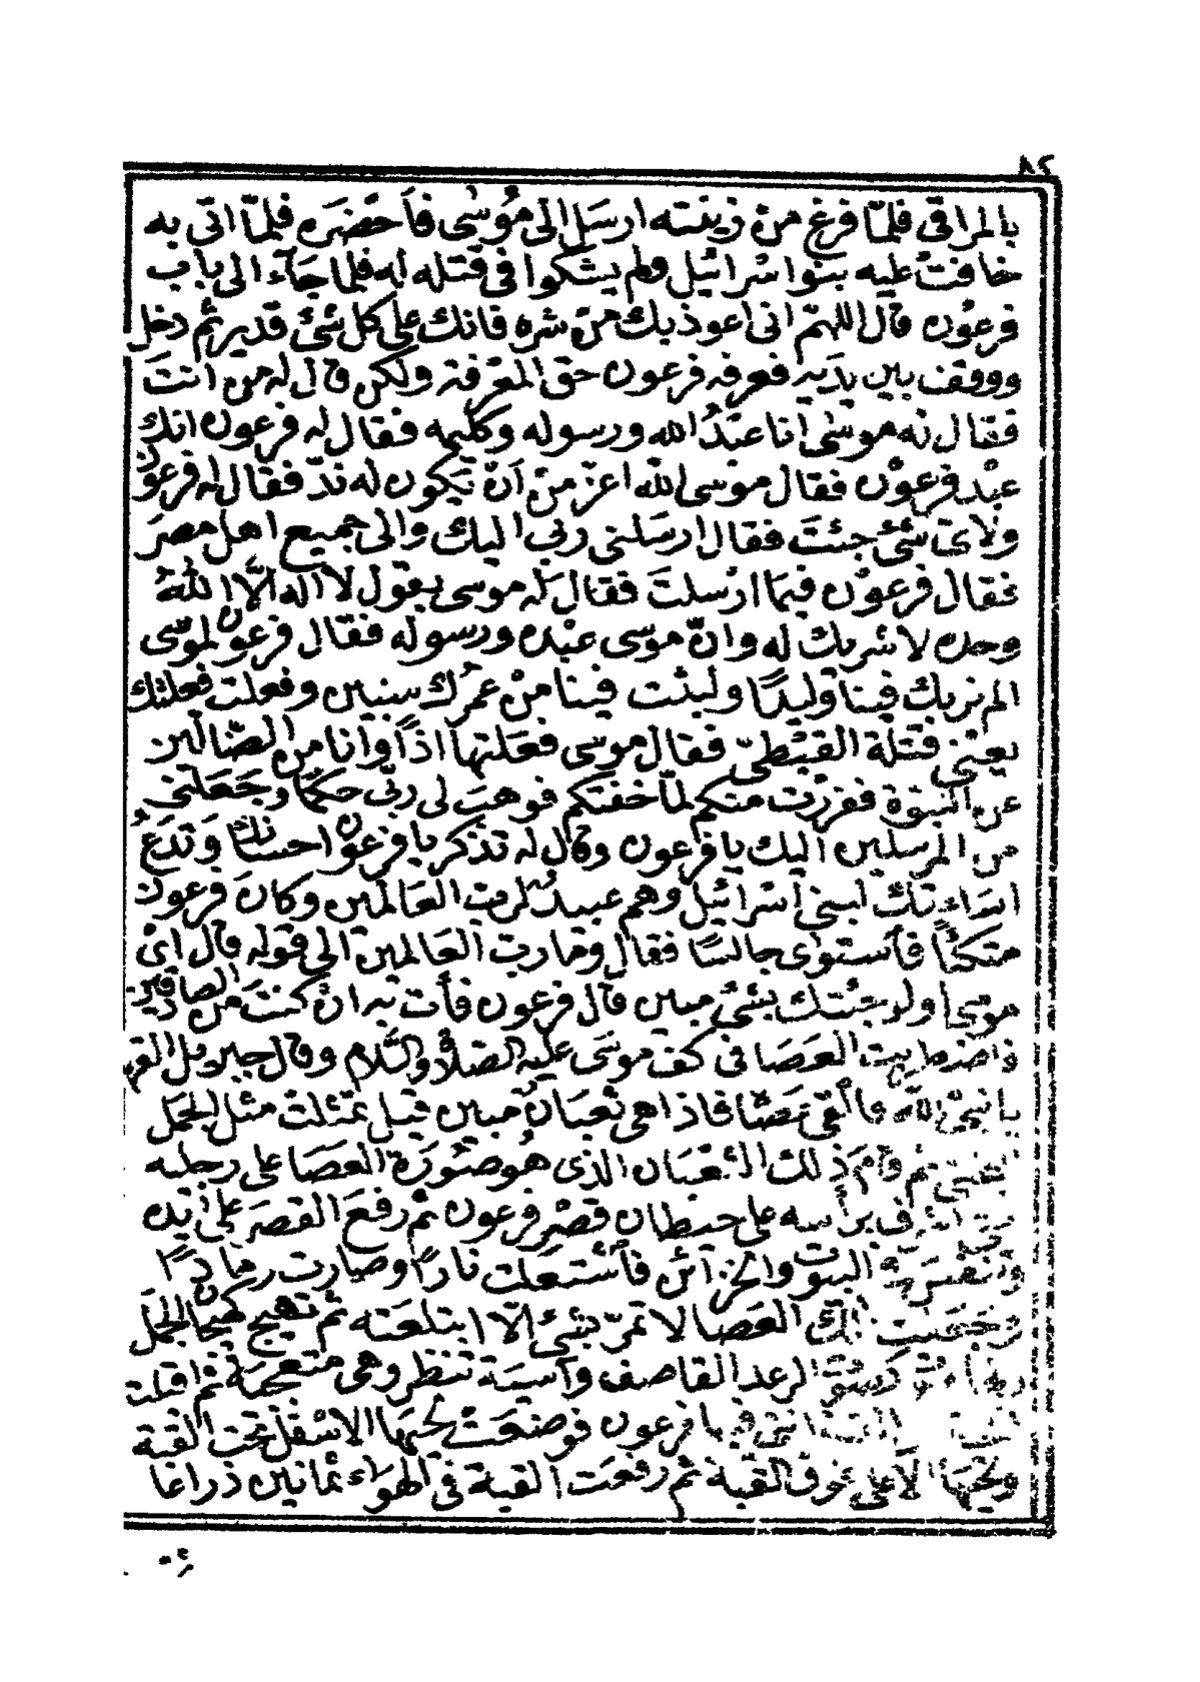 ٨٢
بالمراقى فلمّا فرغ من زينته ارسل الى موسى فأحضره فلمّا اتى به
خافت عليه بنوا سرائيل ولم يشكوا فى قتله له فلما جآء الى باب
فرعون قال اللهم انى اعوذ بك من شره فانك على كل شئ قدير ثم دخل
ووقف بين يديه فعرفه فرعون حق المعرفة ولكن قال له من انت
فقال له موسى انا عبد الله ورسوله وكليمه فقال له فرعون انك
عبد فرعون فقال موسى الله اعز من أن يكون له ندّ فقال له فرعون
ولاى شئ جئت فقال ارسلنى ربى اليك والى جميع اهل مصر
فقال فرعون فيما ارسلت فقال له موسى بقول لا اله الّا الله
وحده لا شريك له وانّ موسى عبده ورسوله فقال فرعون لموسى
الم نربك فينا وليدًا ولبثت فينا من عمرك سنين وفعلت فعلتك
يعنى قتلة القبطىّ فقال موسى فعلتها اذًا وانا من الضّالّين
عن النبوّة ففررت منكم لمّا خفتكم فوهب لى ربّى حكمًا وجعلنى
من المرسلين اليك يا فرعون وقال له تذكر يا فرعون احسانك وتدع
اساءتك لبنى اسرائيل وهم عبيد لرب العالمين وكان فرعون
متكئاً فأستوى جالسًا فقال وما رب العالمين الى قوله قال اى
موسى اولو جئتك بشئ مبين قال فرعون فأت به ان كنت من الصادقين
فاضطربت العصا فى كف موسى عليه الصلاة والسّلام وقال جبريل الق
يا نبىّ الله فألقى عصاه فاذا هى ثعبان مبين قيل تمثلت مثل الجمل
ثم قام ذلك الثعبان الذى هو صورة العصا على رجليه
برأسه على حيطان قصر فرعون ثم رفع القصر على
البيوت والخزآئن فأشتعلت نارًا وصارت رمادًا
تلك العصا لا تمرّ بشئ الّا ابتلعته ثم تهيج كهيجان الجمل
الرعد القاصف وآسية تنظر وهى متعجبة ثم اقبلت
يا فرعون فوضعت لحيها الاسفل تحت القبة
ولحيها الاعلى فوق القبة ثم رفعت القبة فى الهوآء ثمانين ذراعا